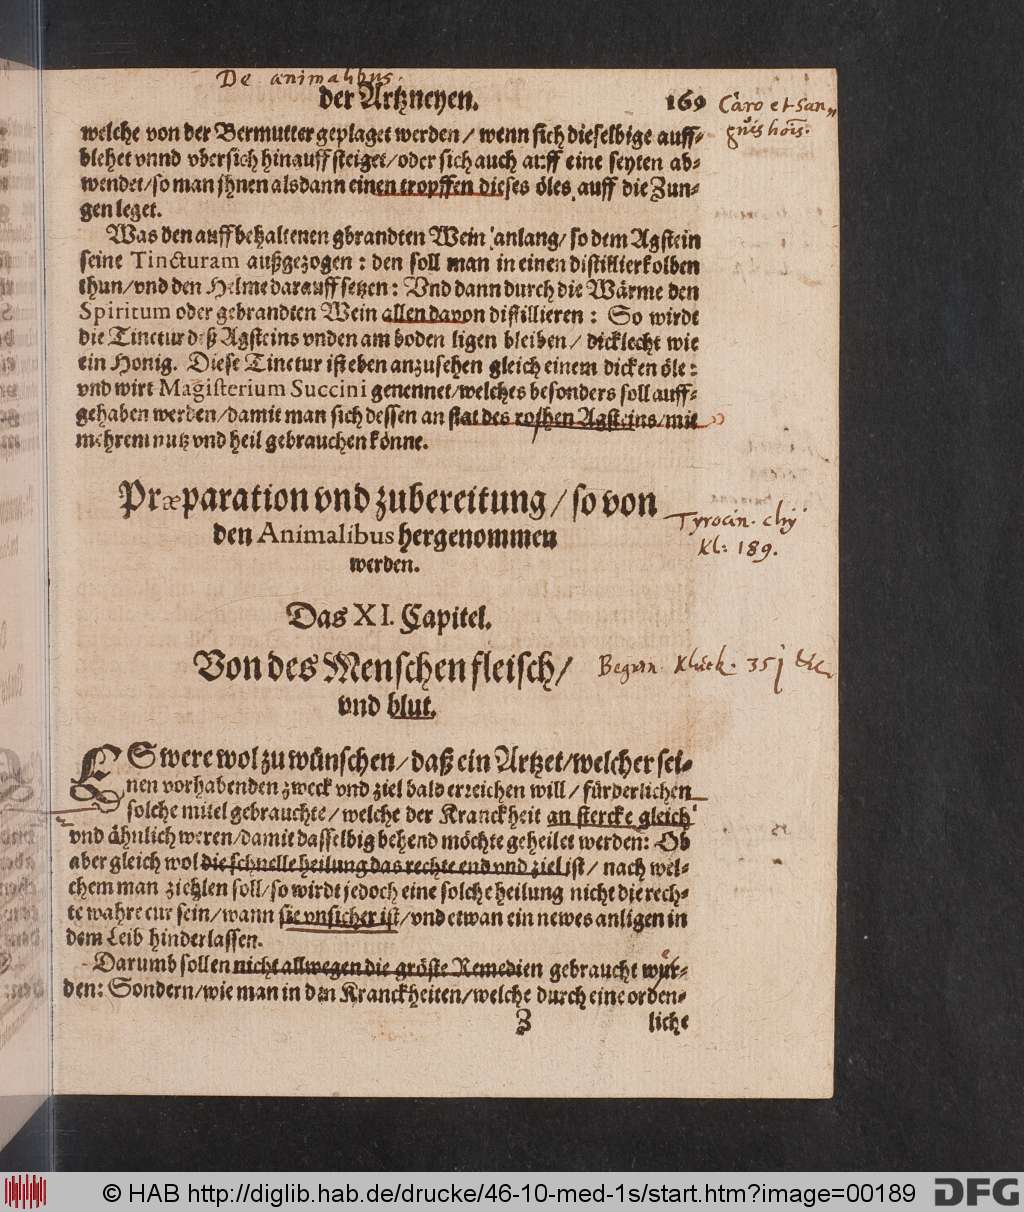 De animalibus.
der Artzneyen. 169 Caro et San„
guis hois.
welche von der Bermutter geplaget werden / wenn sich dieselbige auff-
blehet vnnd vbersich hinauff steiget / oder sich auch auff eine seyten ab-
wendet / so man jhnen alsdann einen tropffen dieses öles auff die Zun-
gen leget.
Was den auffbehaltenen gbrandten Wein anlang / so dem Agstein
seine Tincturam außgezogen : den soll man in einen distillierkolben
thun / vnd den Helme darauff setzen : Vnd dann durch die Wärme den
Spiritum oder gebrandten Wein allen davon distillieren : So wirdt
die Tinctur deß Agsteins vnden am boden ligen bleiben / dicklecht wie
ein Honig. Diese Tinctur ist eben anzusehen gleich einem dicken öle :
vnd wirt Magisterium Succini genennet / welches besonders soll auff-
gehaben werden / damit man sich dessen an stat des rohen Agsteins / mit
mehrem nutz vnd heil gebrauchen könne.
Præparation vnd zubereitung / so von
den Animalibus hergenommen
werden.
Tyrocin. chy
Kl: 189.
Das XI. Capitel.
Von des Menschen fleisch /
vnd blut.
Beguin 351
ES were wol zu wünschen / daß ein Artzet / welcher sei-
nen vorhabenden zweck vnd ziel bald erreichen will / fürderlichen
solche mitel gebrauchte / welche der Kranckheit an stercke gleich
vnd ähnlich weren / damit dasselbig behend möchte geheilet werden: Ob
aber gleich wol die schnelle heilung das rechte end vnd ziel ist / nach wel-
chem man ziehlen soll / so wirdt jedoch eine solche heilung nicht die rech-
te wahre cur sein / wann sie vnsicher ist / vnd etwan ein newes anligen in
dem Leib hinderlassen.
Darumb sollen nicht allwegen die gröste Remedien gebraucht wür-
den: Sondern / wie man in den Kranckheiten / welche durch eine orden-
Z liche
© HAB http://diglib.hab.de/drucke/46-10-med-1s/start.htm?image=00189 DFG